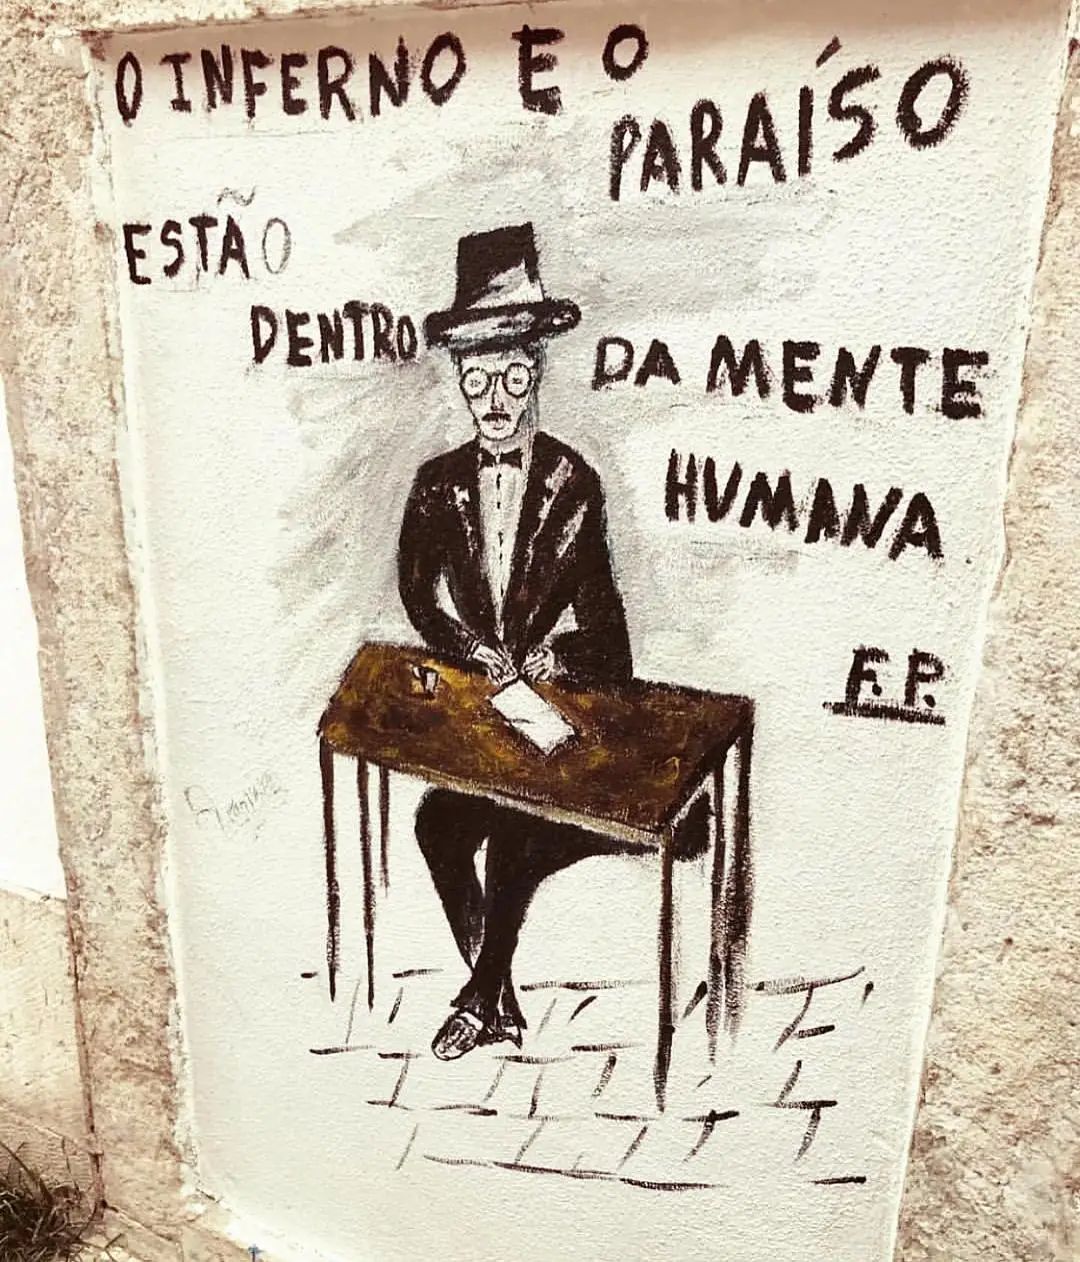 O INFERNO E O
PARAÍSO
ESTÃO
DENTRO
DA MENTE
HUMANA
F.P.